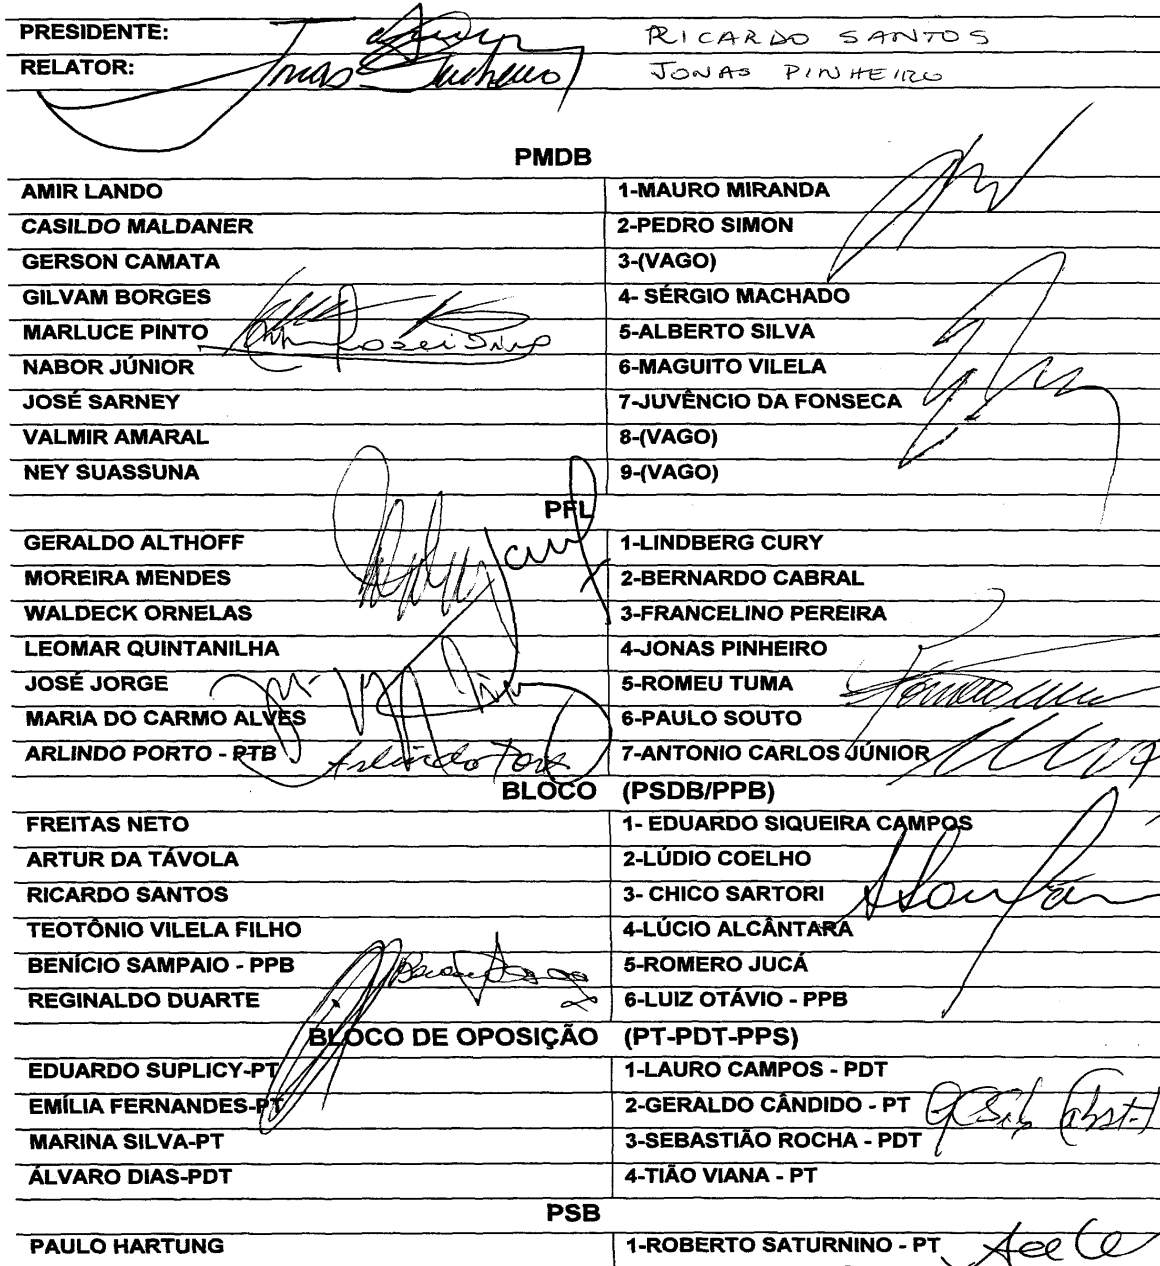 PRESIDENTE: RICARDO SANTOS
RELATOR: Jonas Pinheiro JONAS PINHEIRO
PMDB
AMIR LANDO 1-MAURO MIRANDA
CASILDO MALDANER 2-PEDRO SIMON
GERSON CAMATA 3-(VAGO)
GILVAM BORGES 4- SÉRGIO MACHADO
MARLUCE PINTO 5-ALBERTO SILVA
NABOR JÚNIOR 6-MAGUITO VILELA
JOSÉ SARNEY 7-JUVÊNCIO DA FONSECA
VALMIR AMARAL 8-(VAGO)
NEY SUASSUNA 9-(VAGO)
PFL
GERALDO ALTHOFF 1-LINDBERG CURY
MOREIRA MENDES 2-BERNARDO CABRAL
WALDECK ORNELAS 3-FRANCELINO PEREIRA
LEOMAR QUINTANILHA 4-JONAS PINHEIRO
JOSÉ JORGE 5-ROMEU TUMA
MARIA DO CARMO ALVES 6-PAULO SOUTO
ARLINDO PORTO - PTB Arlindo Porto 7-ANTONIO CARLOS JÚNIOR
BLOCO (PSDB/PPB)
FREITAS NETO 1- EDUARDO SIQUEIRA CAMPOS
ARTUR DA TÁVOLA 2-LÚDIO COELHO
RICARDO SANTOS 3- CHICO SARTORI
TEOTÔNIO VILELA FILHO 4-LÚCIO ALCÂNTARA
BENÍCIO SAMPAIO - PPB 5-ROMERO JUCÁ
REGINALDO DUARTE 6-LUIZ OTÁVIO - PPB
BLOCO DE OPOSIÇÃO (PT-PDT-PPS)
EDUARDO SUPLICY-PT 1-LAURO CAMPOS - PDT
EMÍLIA FERNANDES-PT 2-GERALDO CÂNDIDO - PT
MARINA SILVA-PT 3-SEBASTIÃO ROCHA - PDT
ÁLVARO DIAS-PDT 4-TIÃO VIANA - PT
PSB
PAULO HARTUNG 1-ROBERTO SATURNINO - PT